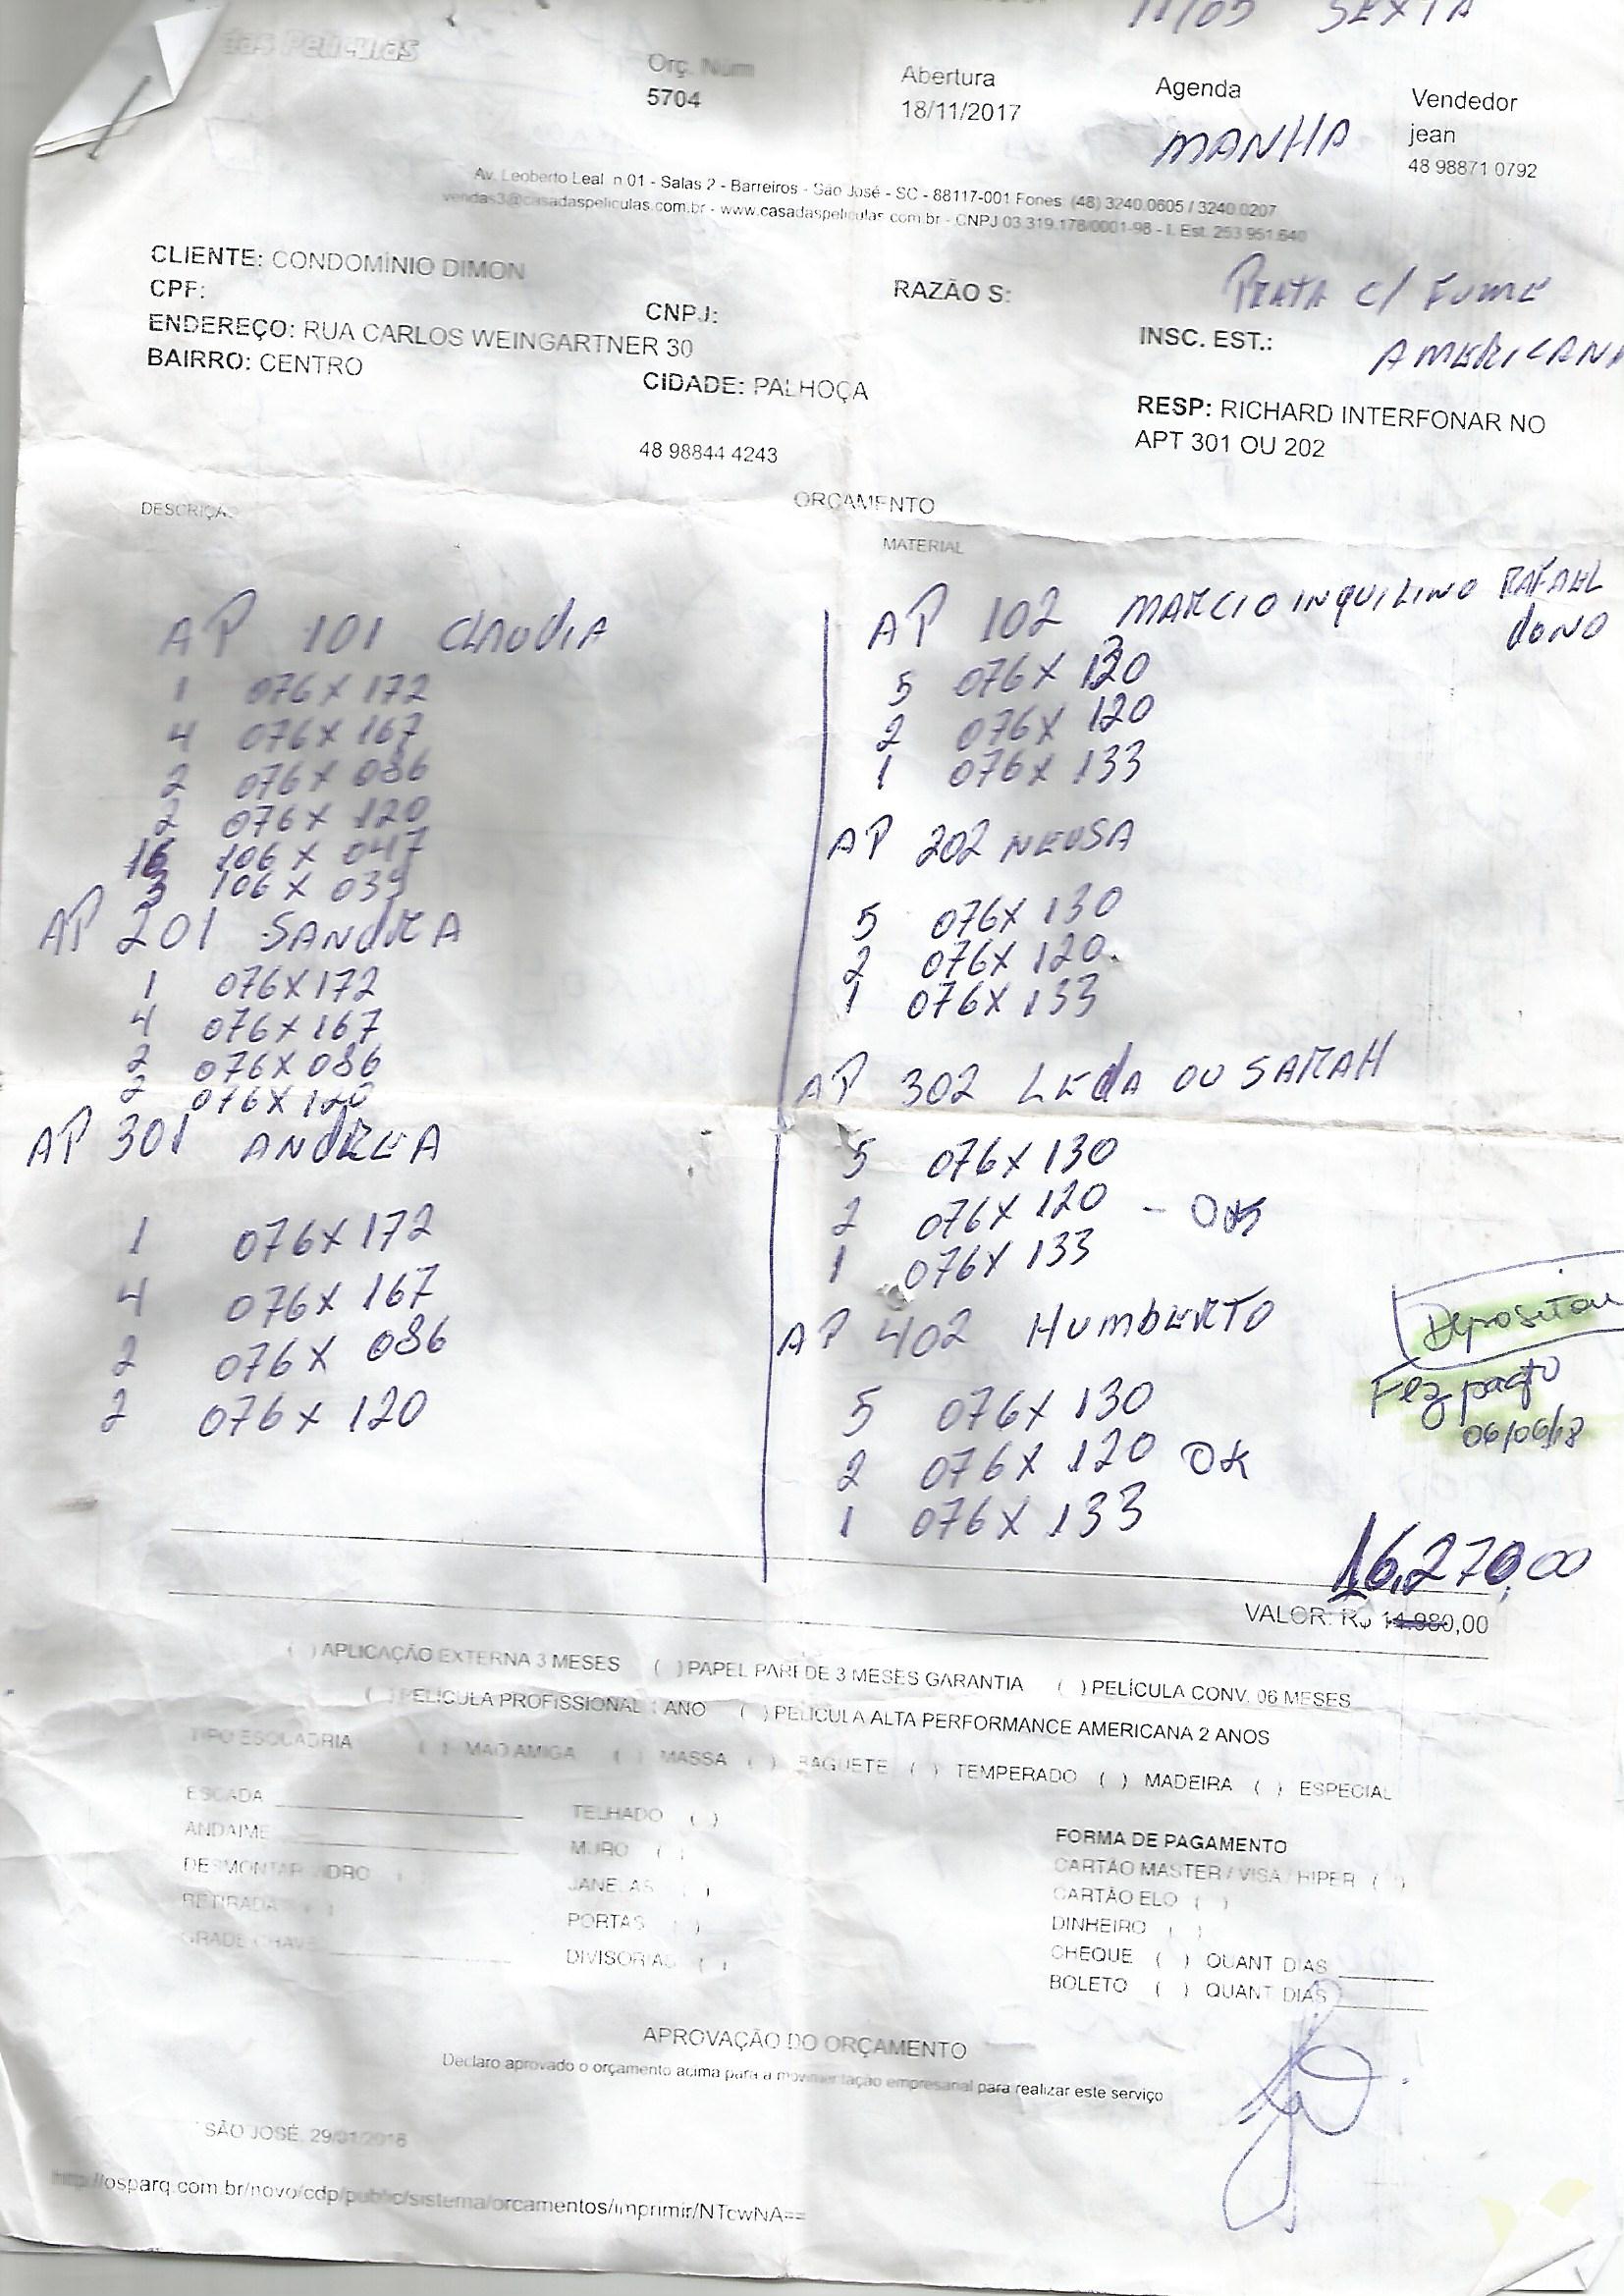 11/05 SEXTA
das Películas
Orç. Núm
5704
Abertura
18/11/2017
Agenda
MANHA
Vendedor
jean
48 98871 0792
Av. Leoberto Leal n 01 - Salas 2 - Barreiros - São José - SC - 88117-001 Fones: (48) 3240.0605 / 3240.0207
vendas3@casadaspeliculas.com.br - www.casadaspeliculas.com.br - CNPJ 03.319.178/0001-98 - I. Est. 253.951.640
CLIENTE: CONDOMÍNIO DIMON
CPF:
CNPJ:
RAZÃO S:
PRATA C/ FUME
ENDEREÇO: RUA CARLOS WEINGARTNER 30
INSC. EST.:
AMERICANA
BAIRRO: CENTRO
CIDADE: PALHOÇA
RESP: RICHARD INTERFONAR NO
APT 301 OU 202
48 98844 4243
ORÇAMENTO
DESCRIÇÃO
MATERIAL
AP 101 CLAUDIA
1 076 X 172
4 076 X 167
2 076 X 086
2 076 X 120
16 106 X 047
3 106 X 039
AP 201 SANDRA
1 076 X 172
4 076 X 167
2 076 X 086
2 076 X 120
AP 301 ANDREA
1 076 X 172
4 076 X 167
2 076 X 086
2 076 X 120
AP 102 MARCIO INQUILINO RAFAEL
DONO
5 076 X 130
2 076 X 120
1 076 X 133
AP 202 NEUSA
5 076 X 130
2 076 X 120.
1 076 X 133
AP 302 LEDA OU SARAH
5 076 X 130
2 076 X 120 -
1 076 X 133
AP 402 HUMBERTO
5 076 X 130
2 076 X 120 OK
1 076 X 133
Depositou
Fez pagto
06/06/18
16.270,00
VALOR: R$ 14.980,00
( ) APLICAÇÃO EXTERNA 3 MESES ( ) PAPEL PAREDE 3 MESES GARANTIA ( ) PELÍCULA CONV. 06 MESES
( ) PELÍCULA PROFISSIONAL 1 ANO ( ) PELÍCULA ALTA PERFORMANCE AMERICANA 2 ANOS
TIPO ESQUADRIA ( ) MAO AMIGA ( ) MASSA ( ) BAGUETE ( ) TEMPERADO ( ) MADEIRA ( ) ESPECIAL
ESCADA
TELHADO ( )
ANDAIME
MURO ( )
DESMONTAR VIDRO
JANELAS ( )
RETIRADA ( )
PORTAS ( )
GRADE CHAVE
DIVISORIAS ( )
FORMA DE PAGAMENTO
CARTÃO MASTER / VISA / HIPER ( )
CARTÃO ELO ( )
DINHEIRO ( )
CHEQUE ( ) QUANT DIAS
BOLETO ( ) QUANT DIAS
APROVAÇÃO DO ORÇAMENTO
Declaro aprovado o orçamento acima para a movimentação empresarial para realizar este serviço
SÃO JOSÉ, 29/01/2018
http://osparq.com.br/novo/cdp/public/sistema/orcamentos/imprimir/NTcwNA==